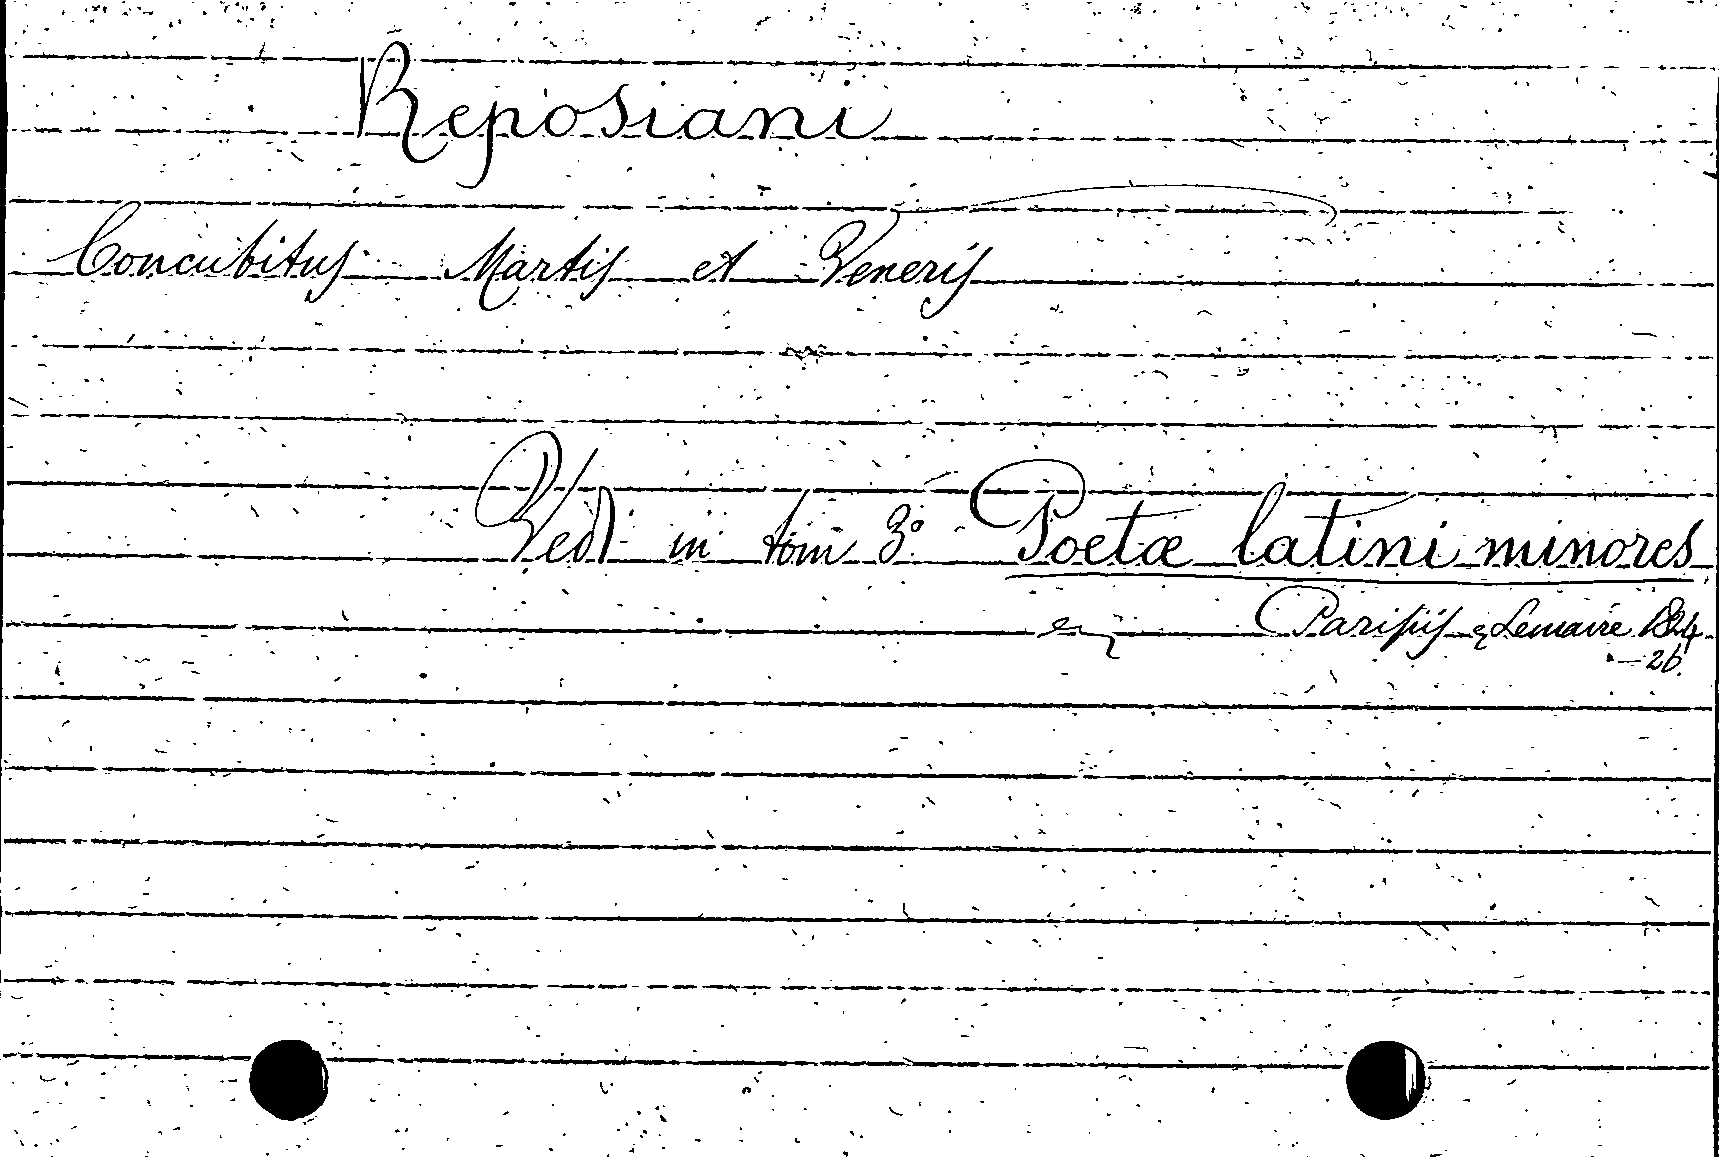 Reposiani
Concubitus Martis et Veneris
Vedi in tom 3º Poetæ latini minores
Parisiis Lemaire 1824
-26.